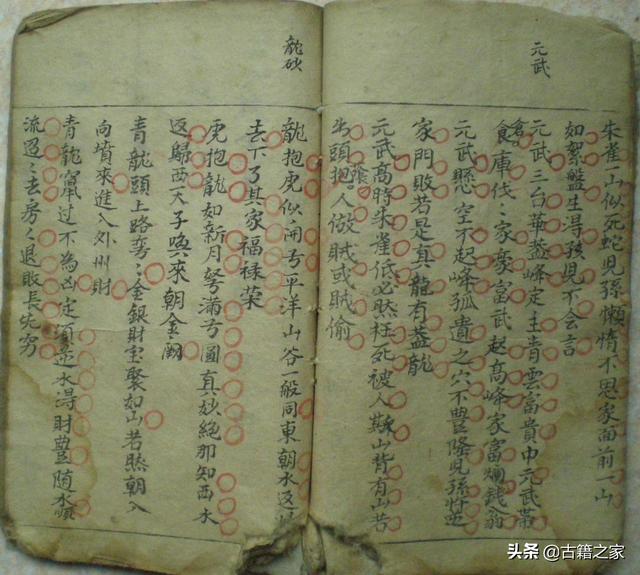 元武
朱雀一山似死蛇兒孫懶惰不思家面前一山
如絮盤生得孩兒不会言
元武三台華蓋峰定主青雲富貴中元武帶
倉庫伐〻家豪富武起高峰家富爛錢翁
食
元武懸空不起峰孤貴之穴不豊隆兒孫
家門敗若是真龍有蓋龍
元武高時朱雀低必然枉死被人欺山背有山苦
出頭抱人做賊或賊偷
龍砂
龍抱虎似開弓平洋山谷一般同東朝水返
去下了其家福祿榮
虎抱龍如新月弩滿弓圓真妙絕那知西水
返歸西天子喚来朝金闕
青龍頭上路弯〻金銀財宝聚如山若然朝入
向墳來進入外州財
青龍竄过不為凶定須逆水得財豊随水順
流過〻去房〻退敗長先穷
头条@古籍之家